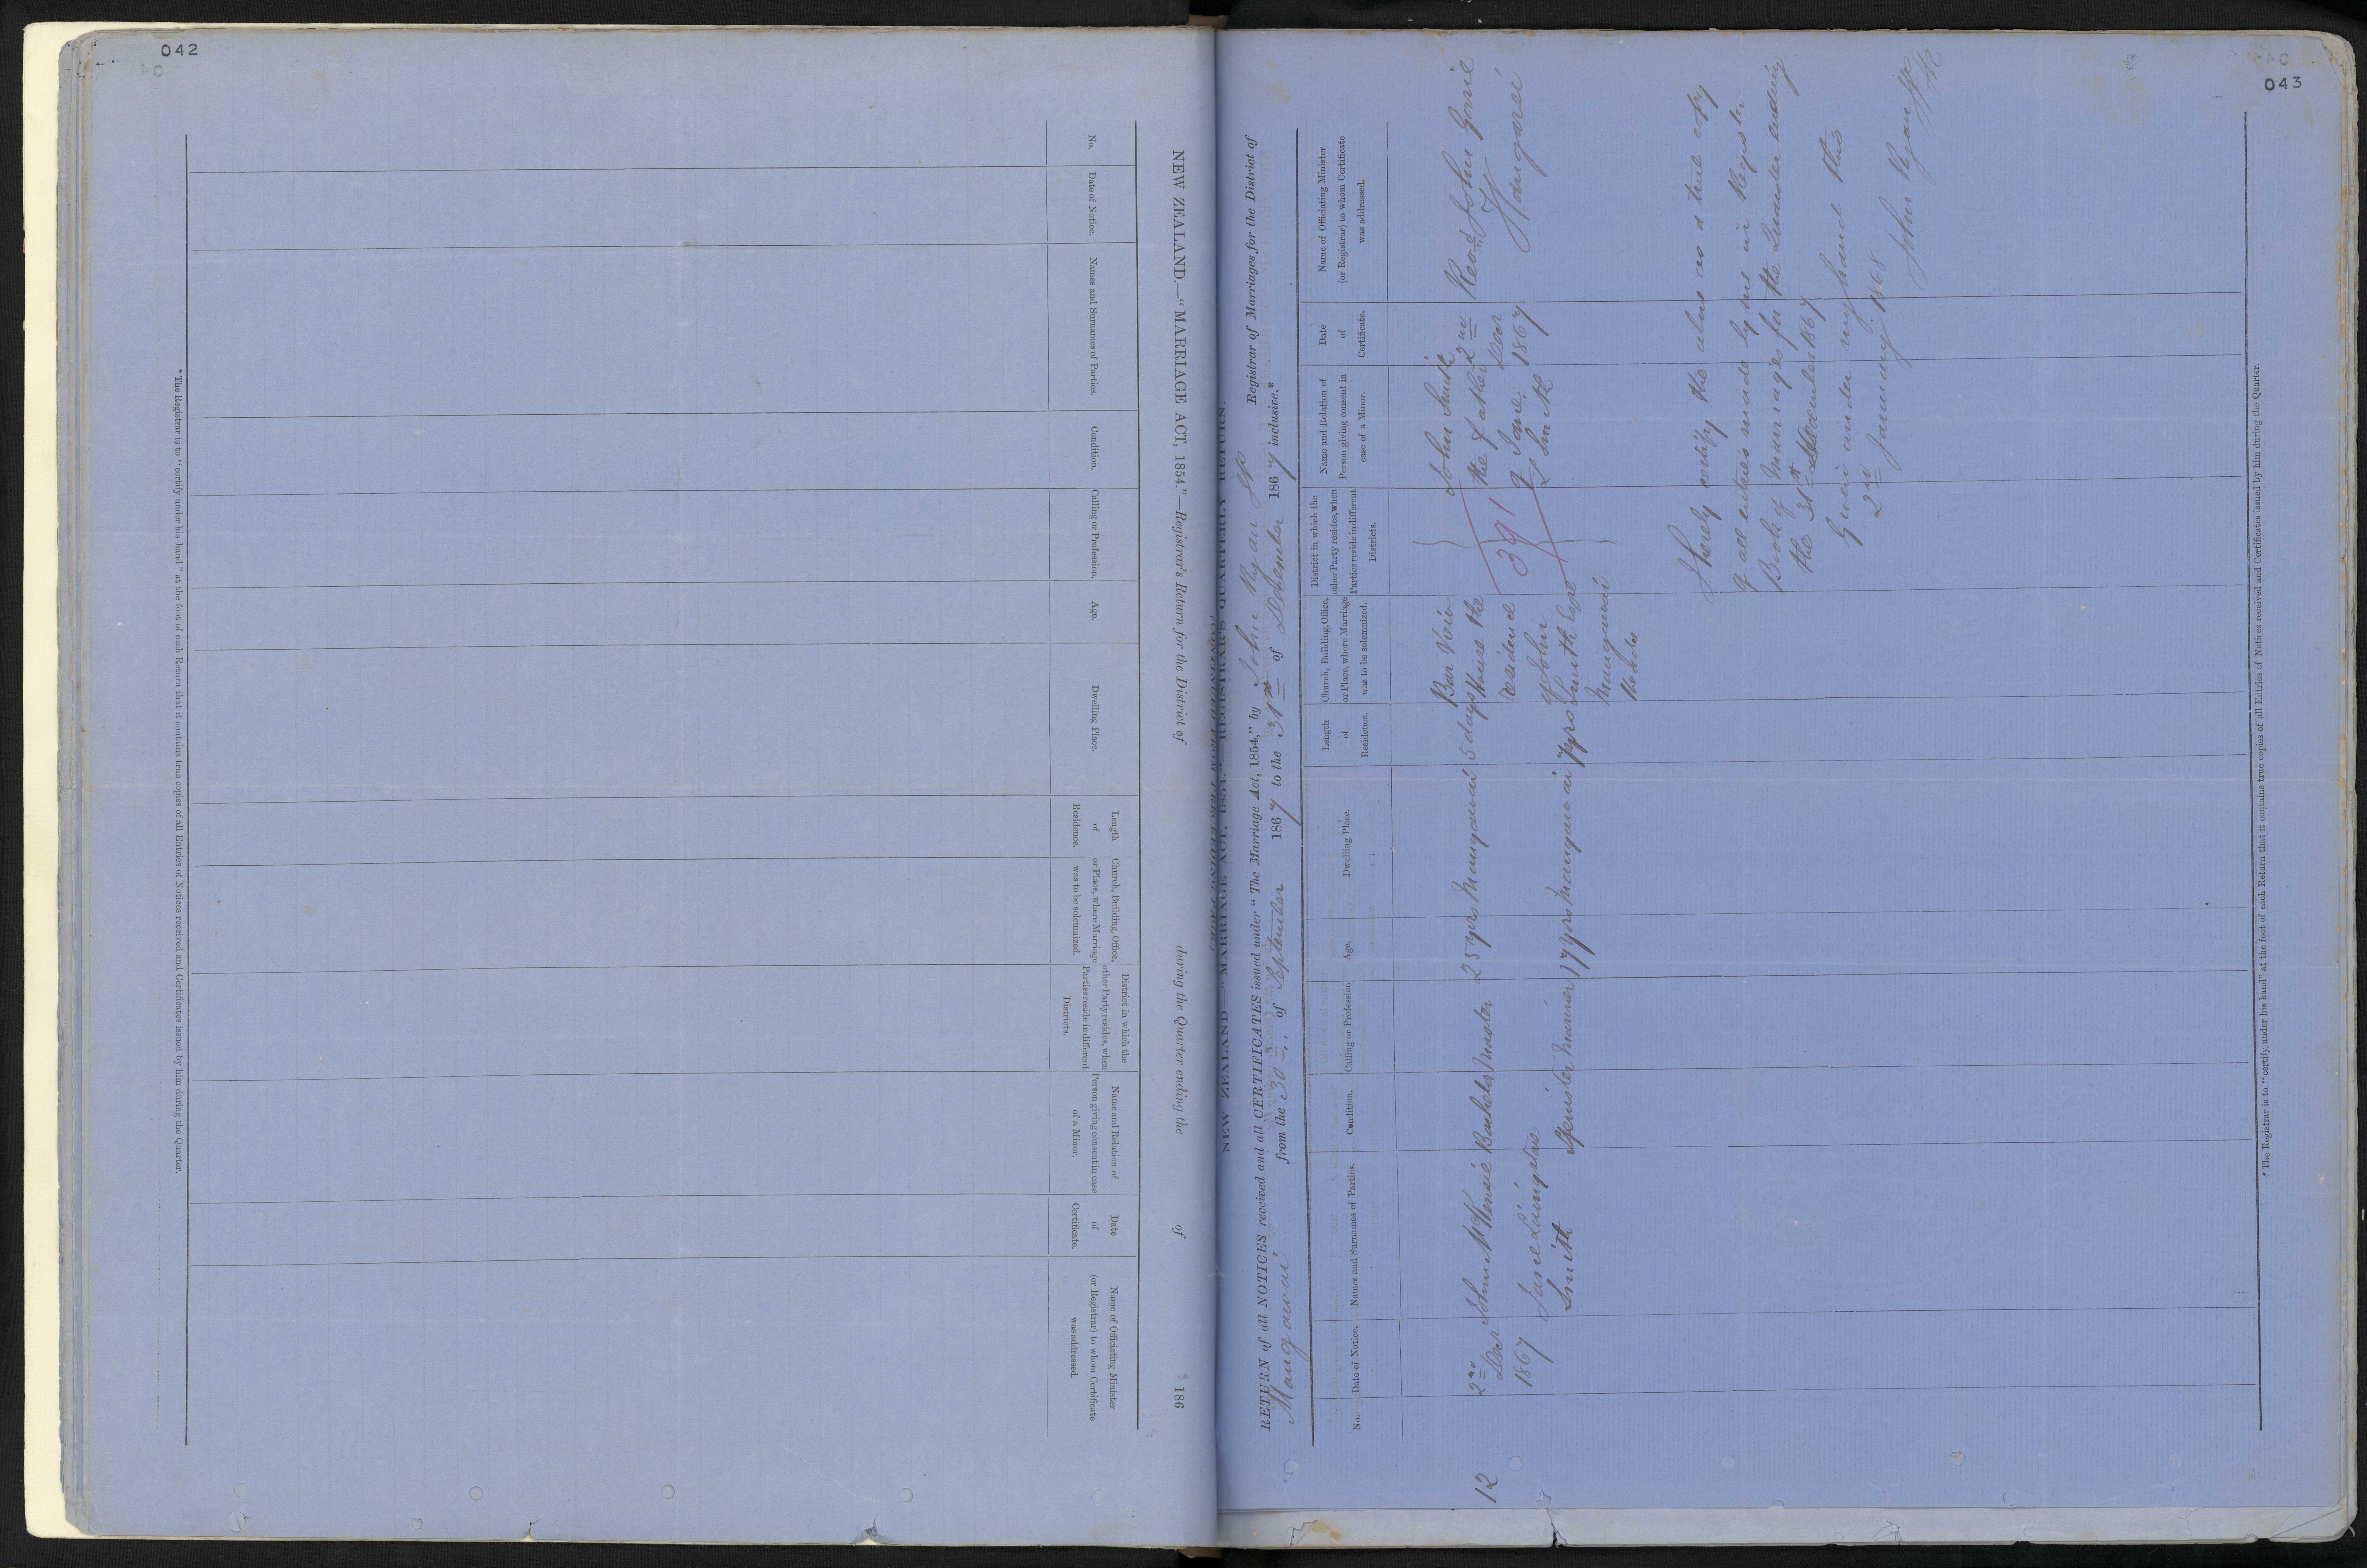 042
NEW ZEALAND.—"MARRIAGE ACT, 1854."—Registrar's Return for the District of during the Quarter ending the of 186
No.
Date of Notice.
Names and Surnames of Parties.
Condition.
Calling or Profession.
Age.
Dwelling Place.
Length
of
Residence.
Church, Building, Office,
or Place, where Marriage
was to be solemnized.
District in which the
other Party resides, when
Parties reside in different
Districts.
Name and Relation of
Person giving consent in case
of a Minor.
Date
of
Certificate.
Name of Officiating Minister
(or Registrar) to whom Certificate
was addressed.
* The Registrar is to "certify under his hand" at the foot of each Return that it contains true copies of all Entries of Notices received and Certificates issued by him during the Quarter.
043
NEW ZEALAND—"MARRIAGE ACT, 1854."—REGISTRAR'S QUARTERLY RETURN.
RETURN of all NOTICES received and all CERTIFICATES issued under "The Marriage Act, 1854," by John Rogan JP Registrar of Marriages for the District of
Mangawai from the 30 of September 1867 to the 31st of December 1867 inclusive.*
No.
Date of Notice.
Names and Surnames of Parties.
Condition.
Calling or Profession
Age.
Dwelling Place.
Length
of
Residence.
Church, Building, Office,
or Place, where Marriage
was to be solemnized.
District in which the
other Party resides, when
Parties reside in different
Districts.
Name and Relation of
Person giving consent in
case of a Minor.
Date
of
Certificate.
Name of Officiating Minister
(or Registrar) to whom Certificate
was addressed.
12
2nd
Decr
1867
John McKensie
Jane
Smith
Bachelor
Spinster
Master
Mariner
25 yrs
17 yrs
Mangawai
Mangawai
5 days
7 yrs
House the
residence
of John
Smith Esqre
Mangawai
Heads
391
John Smith
the father
of Jane
L Smith
2nd
Decr
1867
Revd John Gorrie
Wangarei
I hereby certify the above as a true copy
of all entries made by me in Register
Book of Marriages for the Quarter ending
the 31st December 1867
Given under my hand this
2nd January 1868
John Rogan JP
* The Registrar is to "certify under his hand" at the foot of each Return that it contains true copies of all Entries of Notices received and Certificates issued by him during the Quarter.